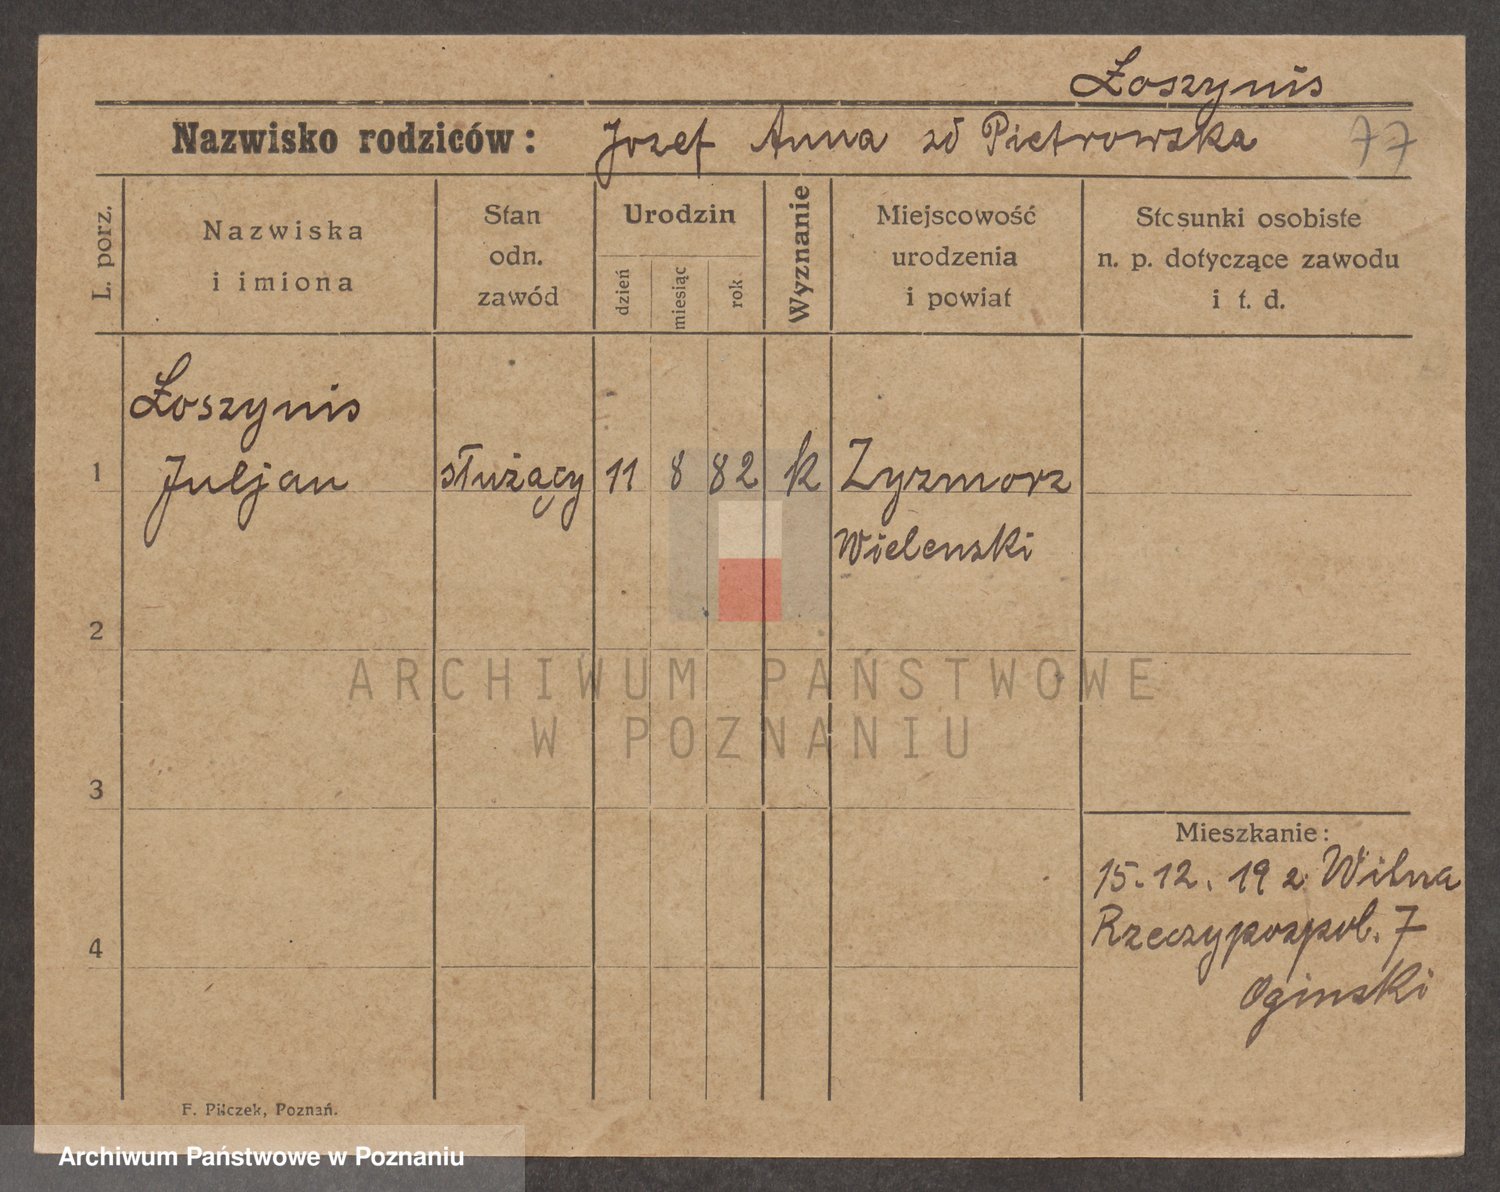 Łoszynis
Nazwisko rodziców: Jozef Anna zd Pietrowska 77
L. porz.
Nazwiska
i imiona
Stan
odn.
zawód
Urodzin
dzień
miesiąc
rok
Wyznanie
Miejscowość
urodzenia
i powiat
Stosunki osobiste
n. p. dotyczące zawodu
i t. d.
Łoszynis
1 Juljan służący 11 8 82 k Zyzmorz
Wielenski
2
ARCHIWUM PAŃSTWOWE
W POZNANIU
3
Mieszkanie:
15.12.19 z Wilna
4 Rzeczypospol. 7
Oginski
F. Pilczek, Poznań.
Archiwum Państwowe w Poznaniu